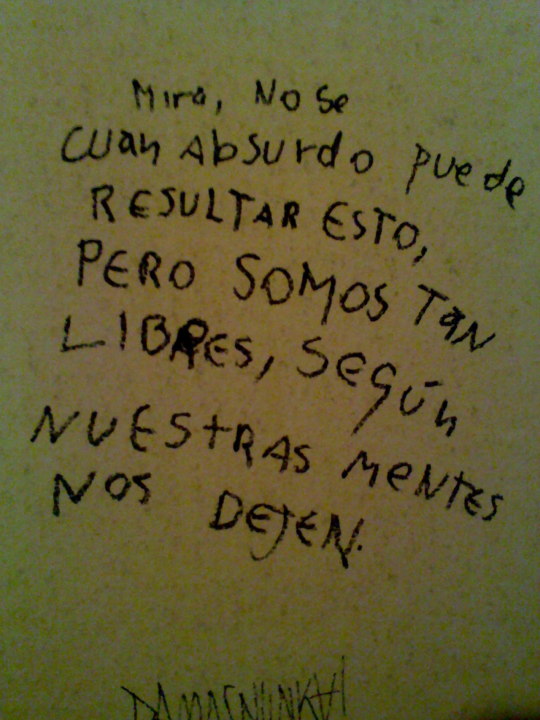 Mira, No se
cuan Absurdo puede
RESULTAR ESTO,
PERO SOMOS TaN
LIBRES, SEGÚn
NUEStRAS MeNTES
NOS DEJEN.